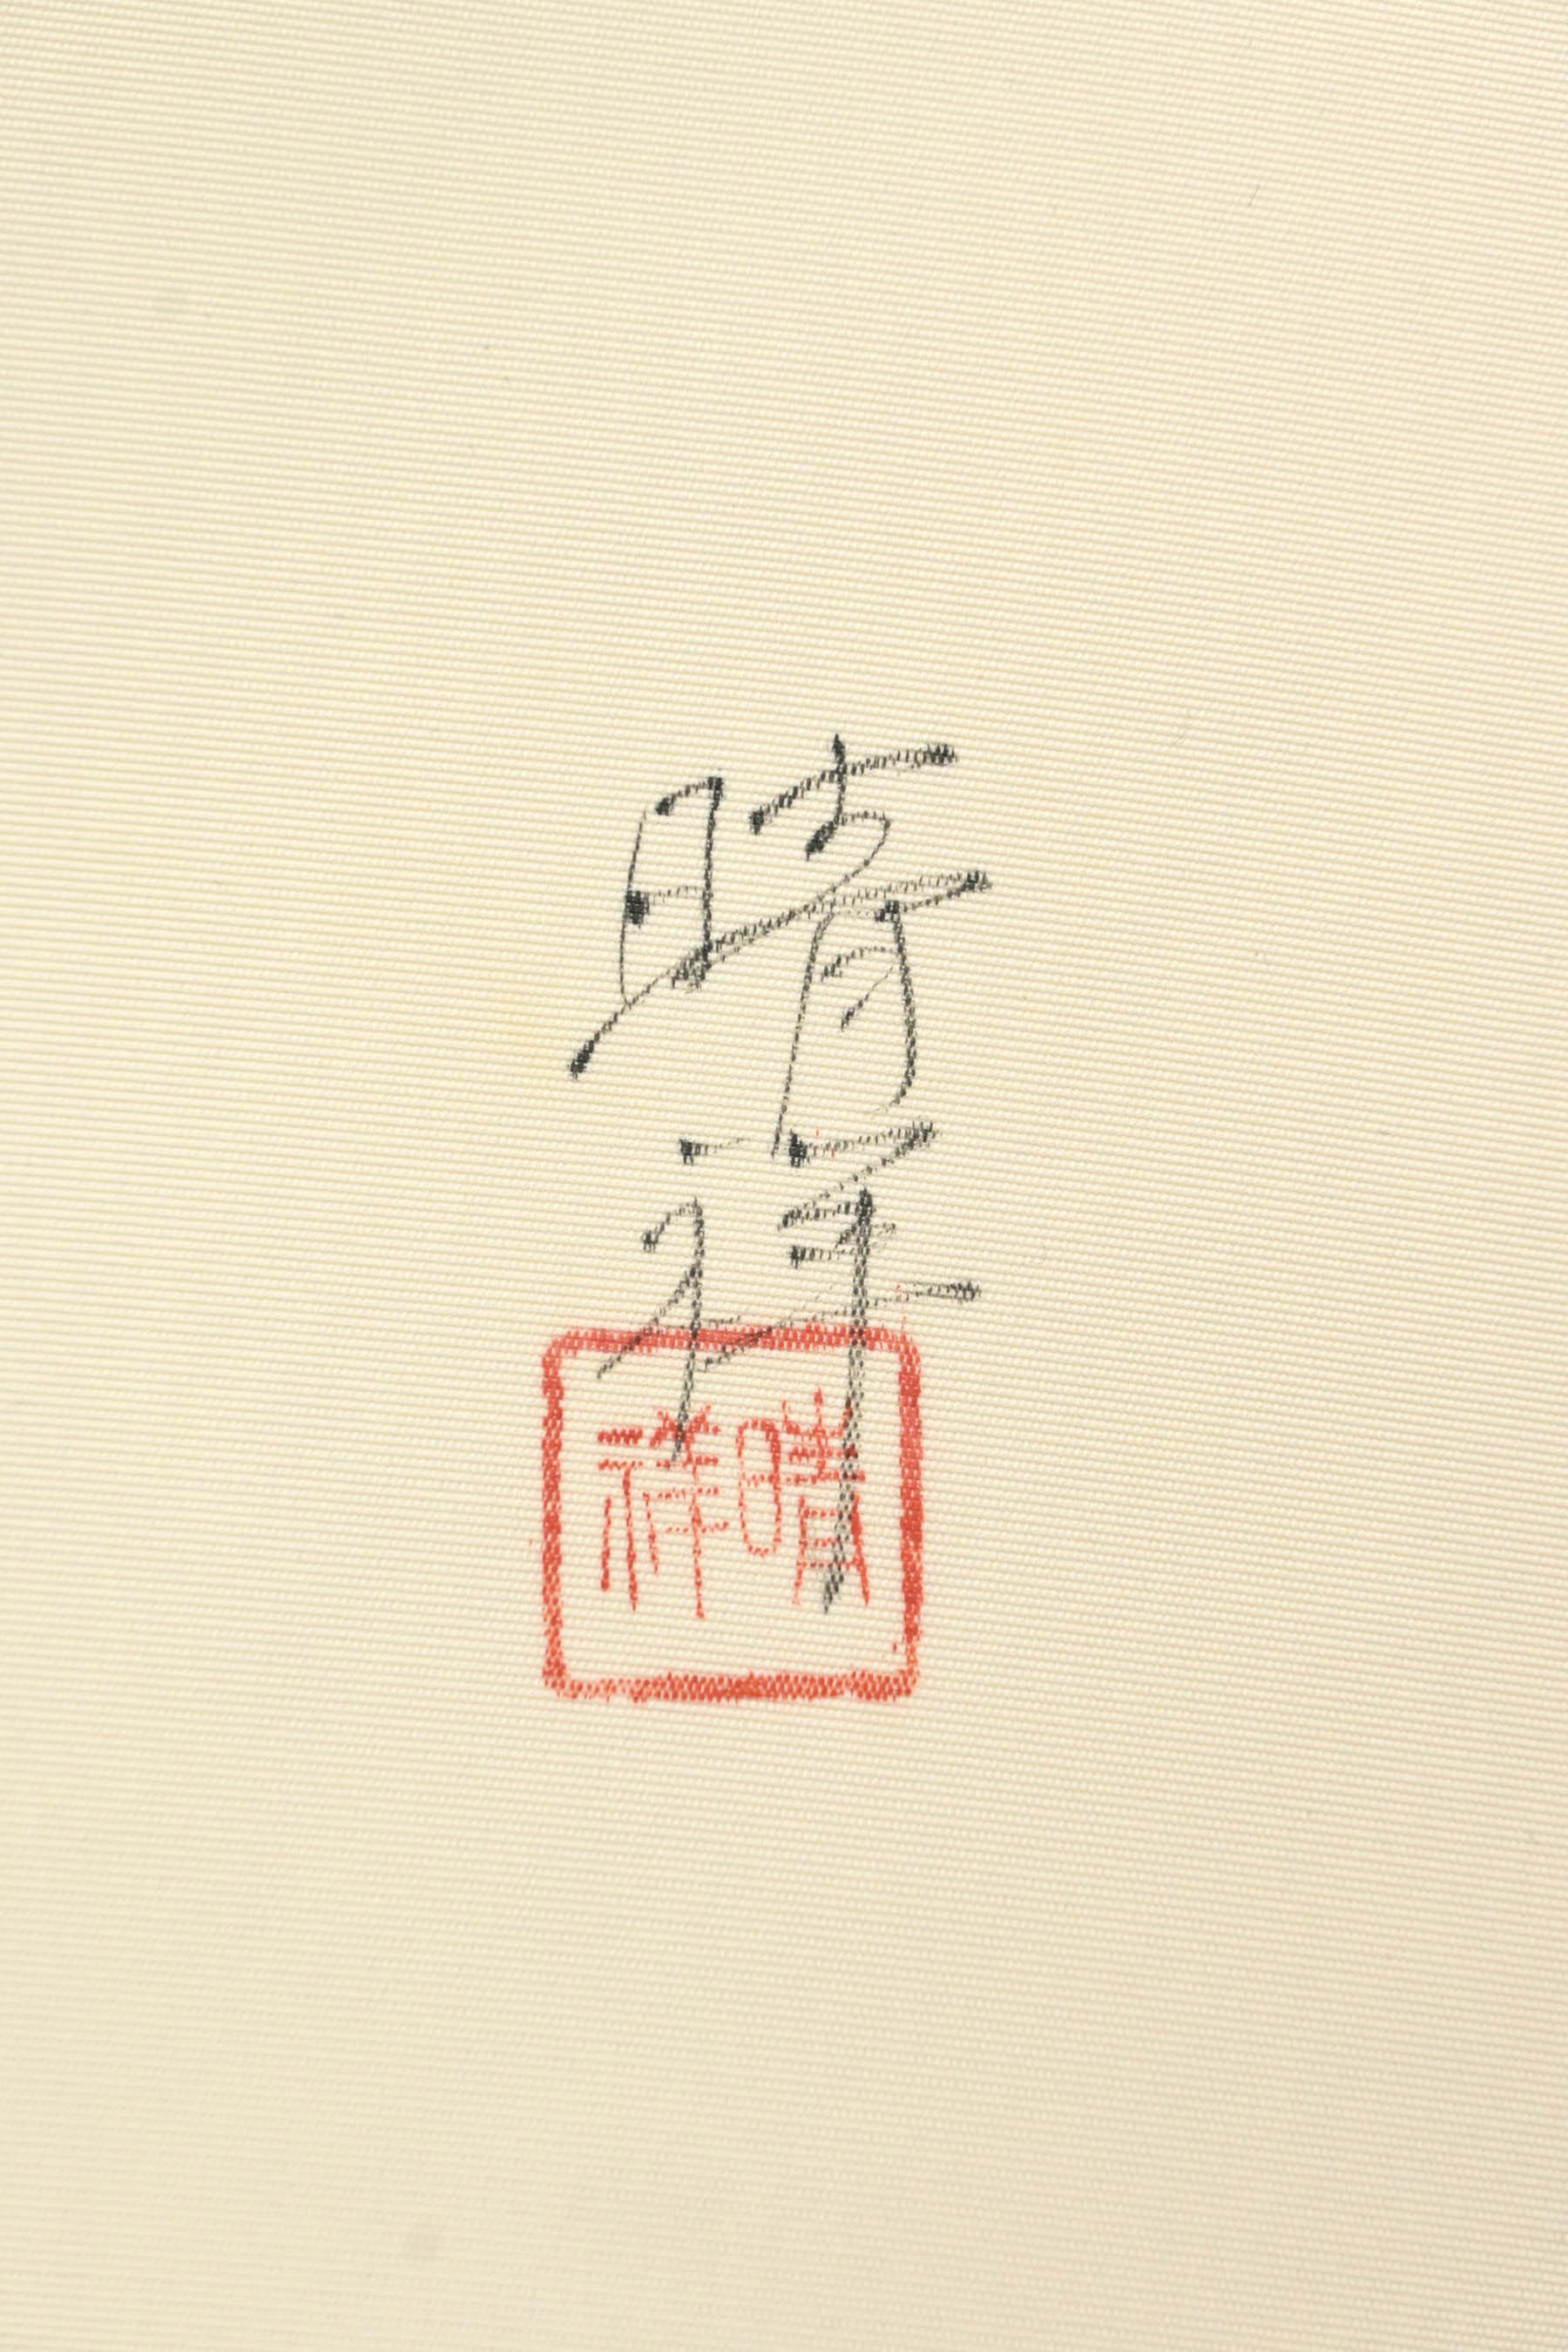 晴祥
晴祥